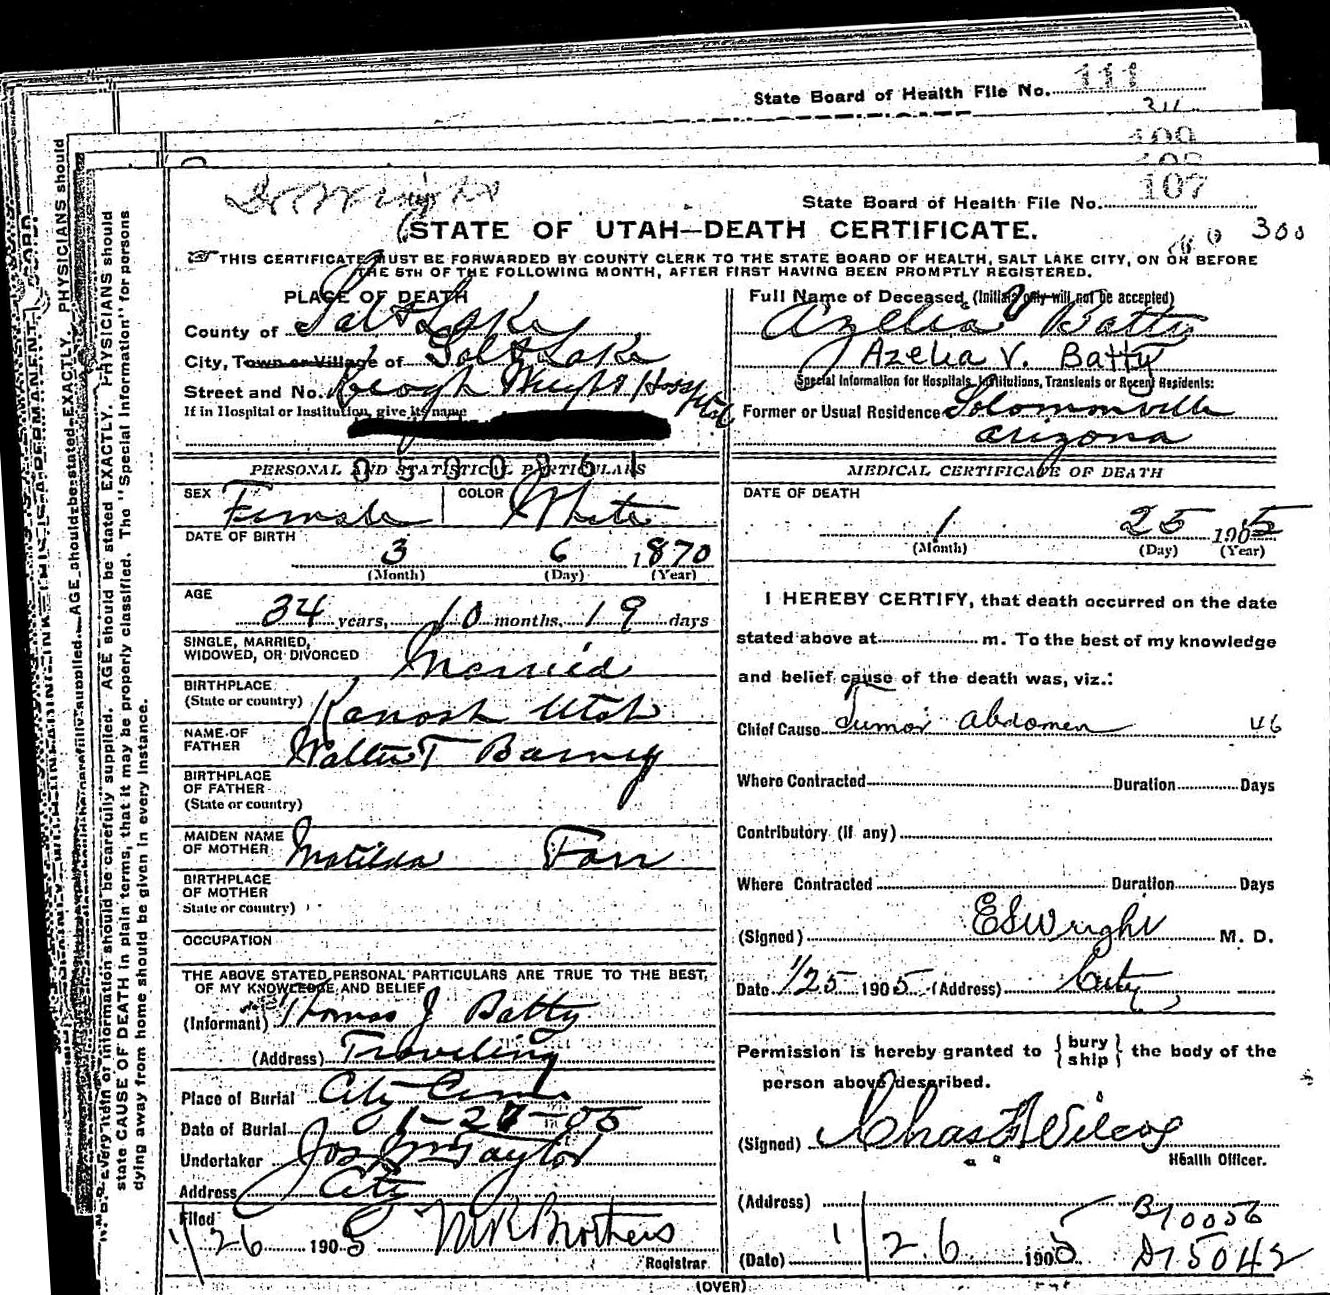 State Board of Health File No. 111
311
109
108
107
State Board of Health File No.
Dr Wright
STATE OF UTAH—DEATH CERTIFICATE.
300
THIS CERTIFICATE MUST BE FORWARDED BY COUNTY CLERK TO THE STATE BOARD OF HEALTH, SALT LAKE CITY, ON OR BEFORE
THE 5TH OF THE FOLLOWING MONTH, AFTER FIRST HAVING BEEN PROMPTLY REGISTERED.
PLACE OF DEATH
County of Salt Lake
City, Town or Village of Salt Lake
Street and No. Keogh Wright Hospital
If in Hospital or Institution, give its name
PERSONAL AND STATISTICAL PARTICULARS
SEX Female COLOR White
DATE OF BIRTH
3 6 1870
(Month) (Day) (Year)
AGE
34 years, 10 months, 19 days
SINGLE, MARRIED,
WIDOWED, OR DIVORCED Married
BIRTHPLACE
(State or country) Kanosh Utah
NAME OF
FATHER Walter T Barney
BIRTHPLACE
OF FATHER
(State or country)
MAIDEN NAME
OF MOTHER Matilda Farr
BIRTHPLACE
OF MOTHER
State or country)
OCCUPATION
THE ABOVE STATED PERSONAL PARTICULARS ARE TRUE TO THE BEST
OF MY KNOWLEDGE AND BELIEF
(Informant) Thomas J Batty
(Address) Traveling
Place of Burial City Cem
Date of Burial 1-27-05
Undertaker Jos Wm Taylor
Address City
Filed
1/26 1905 Brothers
Registrar
Full Name of Deceased (Initials only will not be accepted)
Azelia V Batty
Azelia V. Batty
Special Information for Hospitals, Institutions, Transients or Recent Residents:
Former or Usual Residence Solomonville
Arizona
MEDICAL CERTIFICATE OF DEATH
DATE OF DEATH
1 25 1905
(Month) (Day) (Year)
I HEREBY CERTIFY, that death occurred on the date
stated above at m. To the best of my knowledge
and belief cause of the death was, viz.:
Chief Cause Tumor Abdomen 46
Where Contracted Duration Days
Contributory (if any)
Where Contracted Duration Days
(Signed) E S Wright M. D.
Date 1/25 1905 (Address) City
Permission is hereby granted to { bury ship } the body of the
person above described.
(Signed) Chas F Wilcox
Health Officer.
(Address)
B10056
(Date) 1/26 1905 D15042
(OVER)
N. B. Every item of information should be carefully supplied. AGE should be stated EXACTLY. PHYSICIANS should
state CAUSE OF DEATH in plain terms, that it may be properly classified. The "Special Information" for persons
dying away from home should be given in every instance.